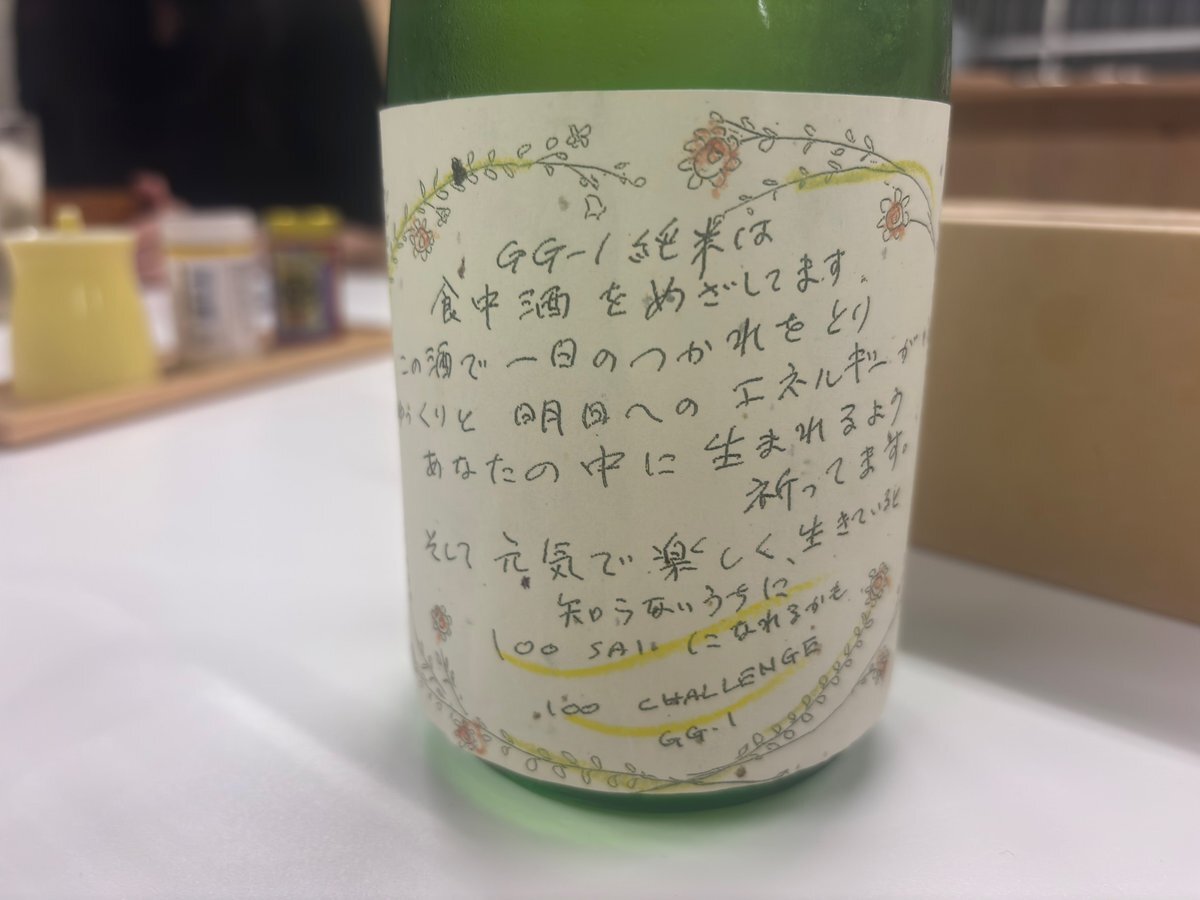 GG-1 純米は
食中酒をめざしてます。
この酒で一日のつかれをとり
ゆっくりと 明日へのエネルギーが
あなたの中に生まれるよう
祈ってます。
そして元気で楽しく、生きていると
知らないうちに
100 SAI になれるかも
100 CHALLENGE
GG-1